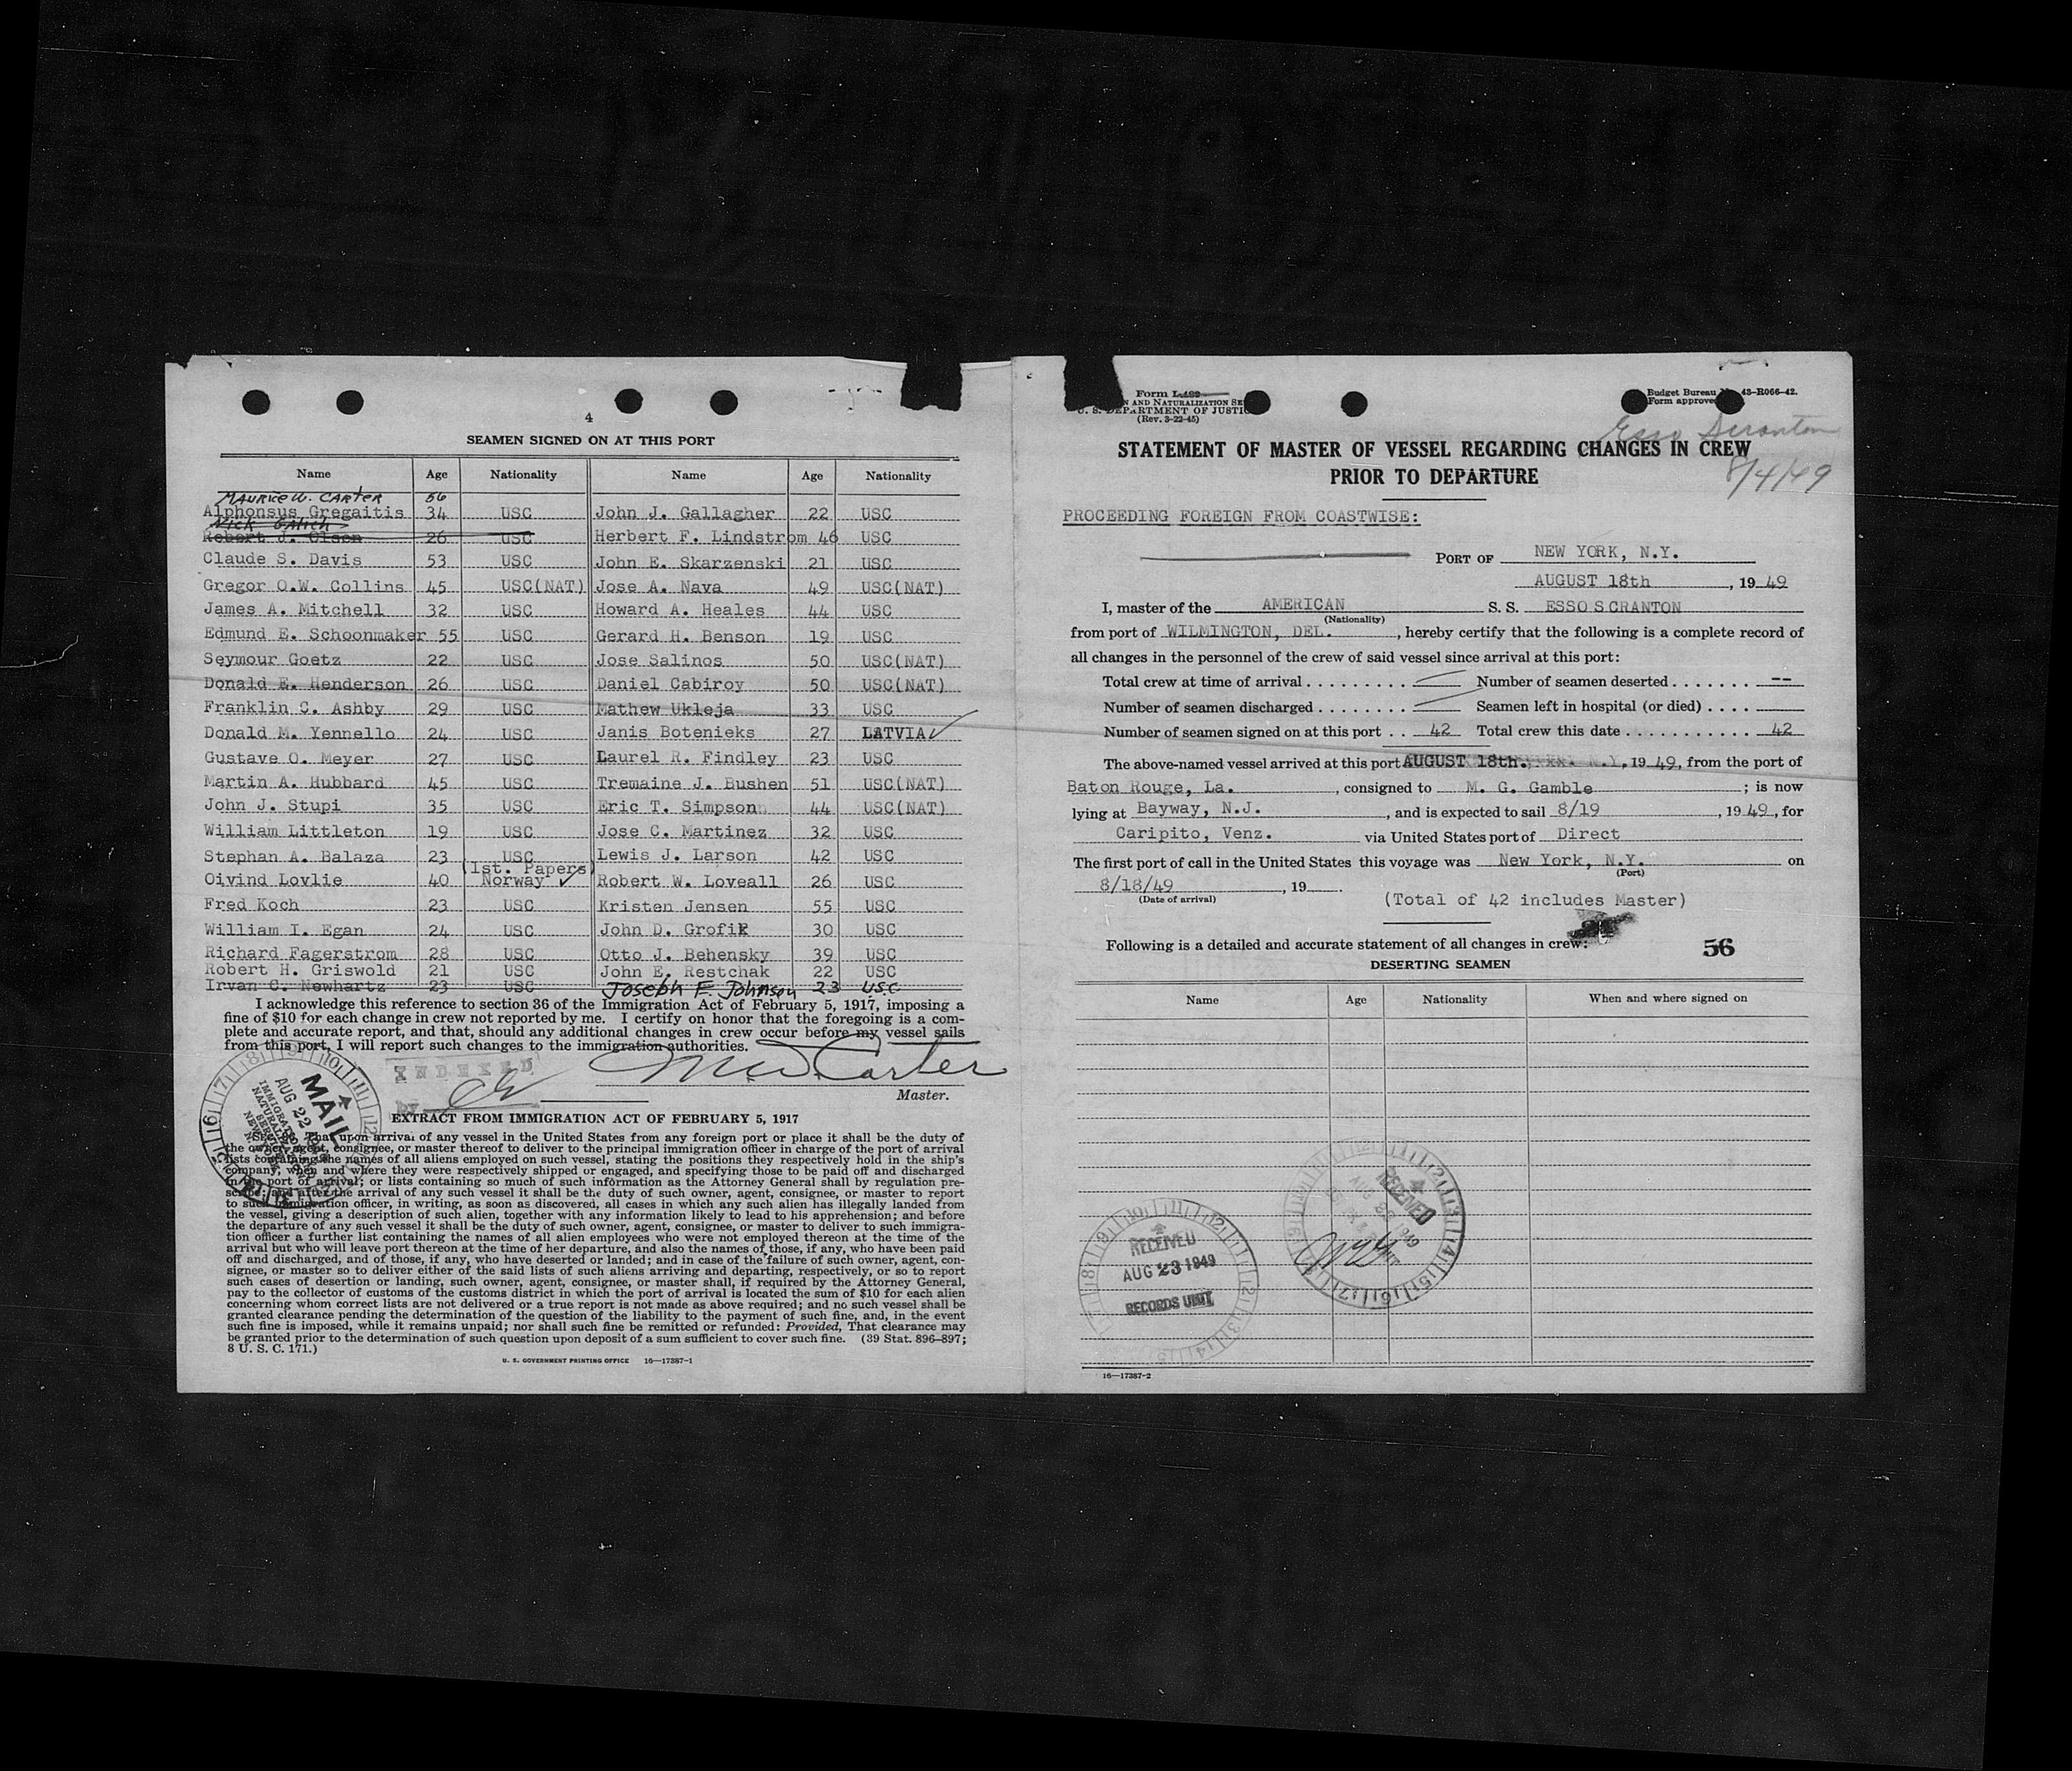 4
SEAMEN SIGNED ON AT THIS PORT
Name Age Nationality Name Age Nationality
MAURICE W. CARTER 56
Alphonsus Gregaitis 34 USC John J. Gallagher 22 USC
Nick
Robert J. Olsen 26 USC Herbert F. Lindstrom 46 USC
Claude S. Davis 53 USC John E. Skarzenski 21 USC
Gregor O.W. Collins 45 USC(NAT) Jose A. Nava 49 USC(NAT)
James A. Mitchell 32 USC Howard A. Heales 44 USC
Edmund E. Schoonmaker 55 USC Gerard H. Benson 19 USC
Seymour Goetz 22 USC Jose Salinos 50 USC(NAT)
Donald E. Henderson 26 USC Daniel Cabiroy 50 USC(NAT)
Franklin C. Ashby 29 USC Mathew Ukleja 33 USC
Donald M. Yennello 24 USC Janis Botenieks 27 LATVIA
Gustave O. Meyer 27 USC Laurel R. Findley 23 USC
Martin A. Hubbard 45 USC Tremaine J. Bushen 51 USC(NAT)
John J. Stupi 35 USC Eric T. Simpson 44 USC(NAT)
William Littleton 19 USC Jose C. Martinez 32 USC
Stephan A. Balaza 23 USC Lewis J. Larson 42 USC
(1st. Papers)
Oivind Lovlie 40 Norway Robert W. Loveall 26 USC
Fred Koch 23 USC Kristen Jensen 55 USC
William I. Egan 24 USC John D. Grofik 30 USC
Richard Fagerstrom 28 USC Otto J. Behensky 39 USC
Robert H. Griswold 21 USC John E. Restchak 22 USC
Irvan C. Newhartz 23 USC Joseph F. Johnson 23 USC
I acknowledge this reference to section 36 of the Immigration Act of February 5, 1917, imposing a
fine of $10 for each change in crew not reported by me. I certify on honor that the foregoing is a com-
plete and accurate report, and that, should any additional changes in crew occur before my vessel sails
from this port, I will report such changes to the immigration authorities.
INDEXED
BY
M W Carter
Master.
MAIL
AUG 22
EXTRACT FROM IMMIGRATION ACT OF FEBRUARY 5, 1917
That upon arrival of any vessel in the United States from any foreign port or place it shall be the duty of
the owner, agent, consignee, or master thereof to deliver to the principal immigration officer in charge of the port of arrival
lists containing the names of all aliens employed on such vessel, stating the positions they respectively hold in the ship's
company, when and where they were respectively shipped or engaged, and specifying those to be paid off and discharged
in the port of arrival; or lists containing so much of such information as the Attorney General shall by regulation pre-
scribe; and after the arrival of any such vessel it shall be the duty of such owner, agent, consignee, or master to report
to such immigration officer, in writing, as soon as discovered, all cases in which any such alien has illegally landed from
the vessel, giving a description of such alien, together with any information likely to lead to his apprehension; and before
the departure of any such vessel it shall be the duty of such owner, agent, consignee, or master to deliver to such immigra-
tion officer a further list containing the names of all alien employees who were not employed thereon at the time of the
arrival but who will leave port thereon at the time of her departure, and also the names of those, if any, who have been paid
off and discharged, and of those, if any, who have deserted or landed; and in case of the failure of such owner, agent, con-
signee, or master so to deliver either of the said lists of such aliens arriving and departing, respectively, or so to report
such cases of desertion or landing, such owner, agent, consignee, or master shall, if required by the Attorney General,
pay to the collector of customs of the customs district in which the port of arrival is located the sum of $10 for each alien
concerning whom correct lists are not delivered or a true report is not made as above required; and no such vessel shall be
granted clearance pending the determination of the question of the liability to the payment of such fine, and, in the event
such fine is imposed, while it remains unpaid; nor shall such fine be remitted or refunded: Provided, That clearance may
be granted prior to the determination of such question upon deposit of a sum sufficient to cover such fine. (39 Stat. 896–897;
8 U. S. C. 171.)
U. S. GOVERNMENT PRINTING OFFICE 16—17387-1
Form I-489
N AND NATURALIZATION SE
U. S. DEPARTMENT OF JUSTIC
(Rev. 3-22-45)
Budget Bureau 43-R066-42.
Form approve
Esso Scranton
8/4/49
STATEMENT OF MASTER OF VESSEL REGARDING CHANGES IN CREW
PRIOR TO DEPARTURE
PROCEEDING FOREIGN FROM COASTWISE:
PORT OF NEW YORK, N.Y.
AUGUST 18th, 1949
I, master of the AMERICAN S. S. ESSO SCRANTON
(Nationality)
from port of WILMINGTON, DEL., hereby certify that the following is a complete record of
all changes in the personnel of the crew of said vessel since arrival at this port:
Total crew at time of arrival . . . . . . . . . Number of seamen deserted . . . . . . . --
Number of seamen discharged . . . . . . . . Seamen left in hospital (or died) . . . .
Number of seamen signed on at this port . . 42 Total crew this date . . . . . . . . . . . 42
The above-named vessel arrived at this port AUGUST 18th. N.Y, 1949, from the port of
Baton Rouge, La., consigned to M. G. Gamble; is now
lying at Bayway, N.J., and is expected to sail 8/19, 1949, for
Caripito, Venz. via United States port of Direct
The first port of call in the United States this voyage was New York, N.Y. on
(Port)
8/18/49, 19 .
(Date of arrival)
(Total of 42 includes Master)
Following is a detailed and accurate statement of all changes in crew:
56
DESERTING SEAMEN
Name Age Nationality When and where signed on
RECEIVED
AUG 23 1949
RECORDS UNIT
RECEIVED
AUG 1949
16—17387-2